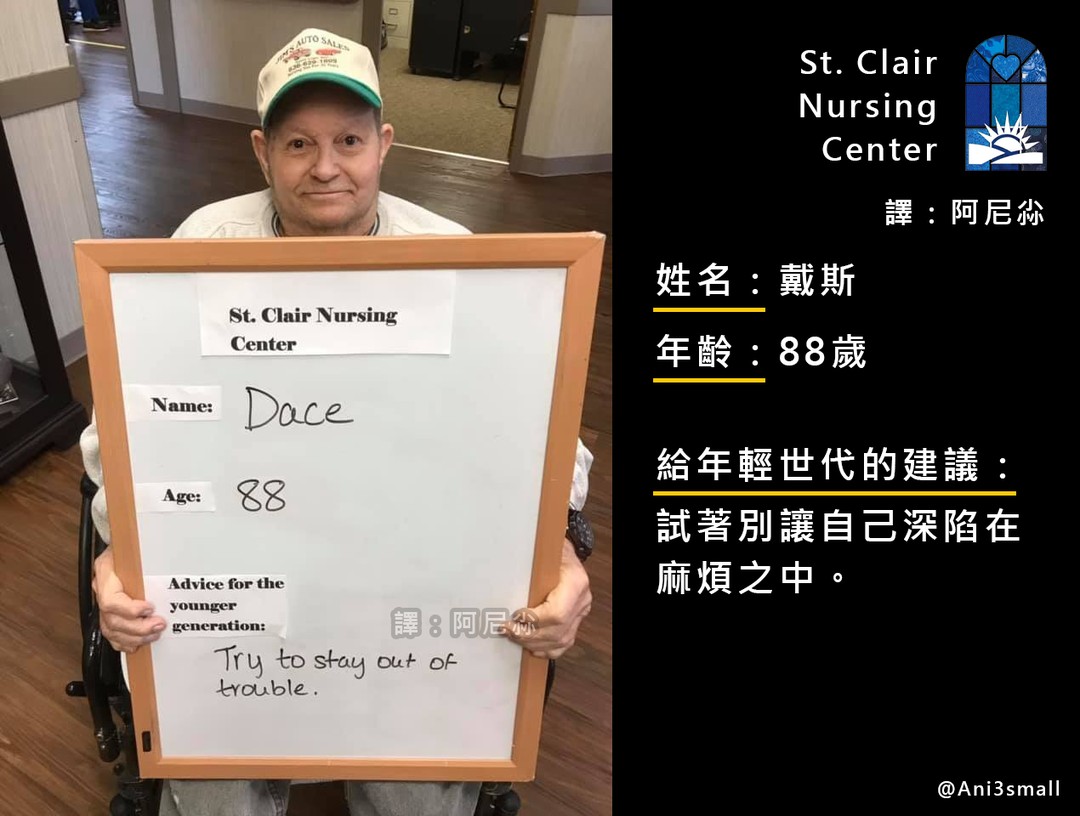 JIM'S AUTO SALES
636-629-1899
St. Clair Nursing
Center
Name: Dace
Age: 88
Advice for the
younger
generation:
譯：阿尼尛
Try to stay out of
trouble.
St. Clair
Nursing
Center
譯：阿尼尛
姓名：戴斯
年齡：88歲
給年輕世代的建議：
試著別讓自己深陷在
麻煩之中。
@Ani3small